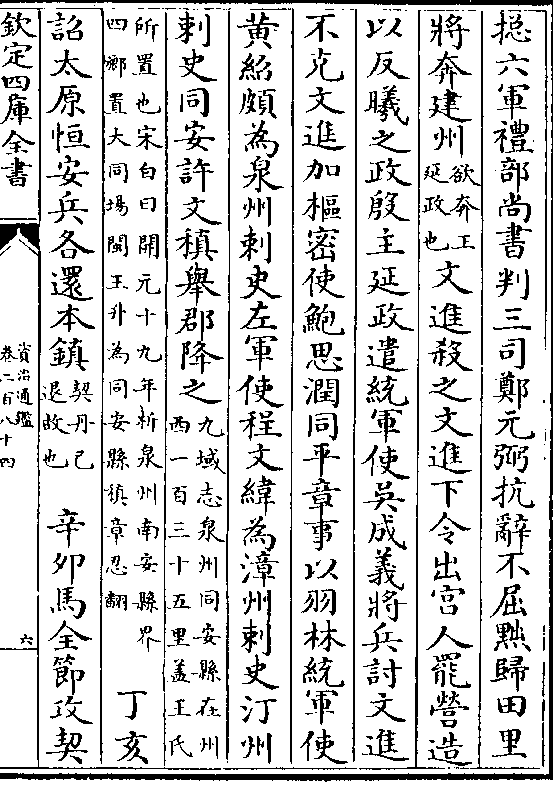 摠六軍禮部尚書判三司鄭元弼抗辭不屈黜歸田里
將奔建州欲奔王延政也文進殺之文進下令出宮人罷營造
以反曦之政殷主延政遣統軍使吳成義將兵討文進
不克文進加樞密使鮑思潤同平章事以羽林統軍使
黄紹頗為泉州刺史左軍使程文緯為漳州刺史汀州
刺史同安許文稹舉郡降之九域志泉州同安縣在州西一百三十五里葢王氏
所置也宋白曰開元十九年析泉州南安縣界四鄉置大同場閩王升為同安縣稹章忍翻丁亥
詔太原恒安兵各還本鎮契丹已退故也辛卯馬全節攻契
欽定四庫全書
資治通鑑
卷二百八十四
六